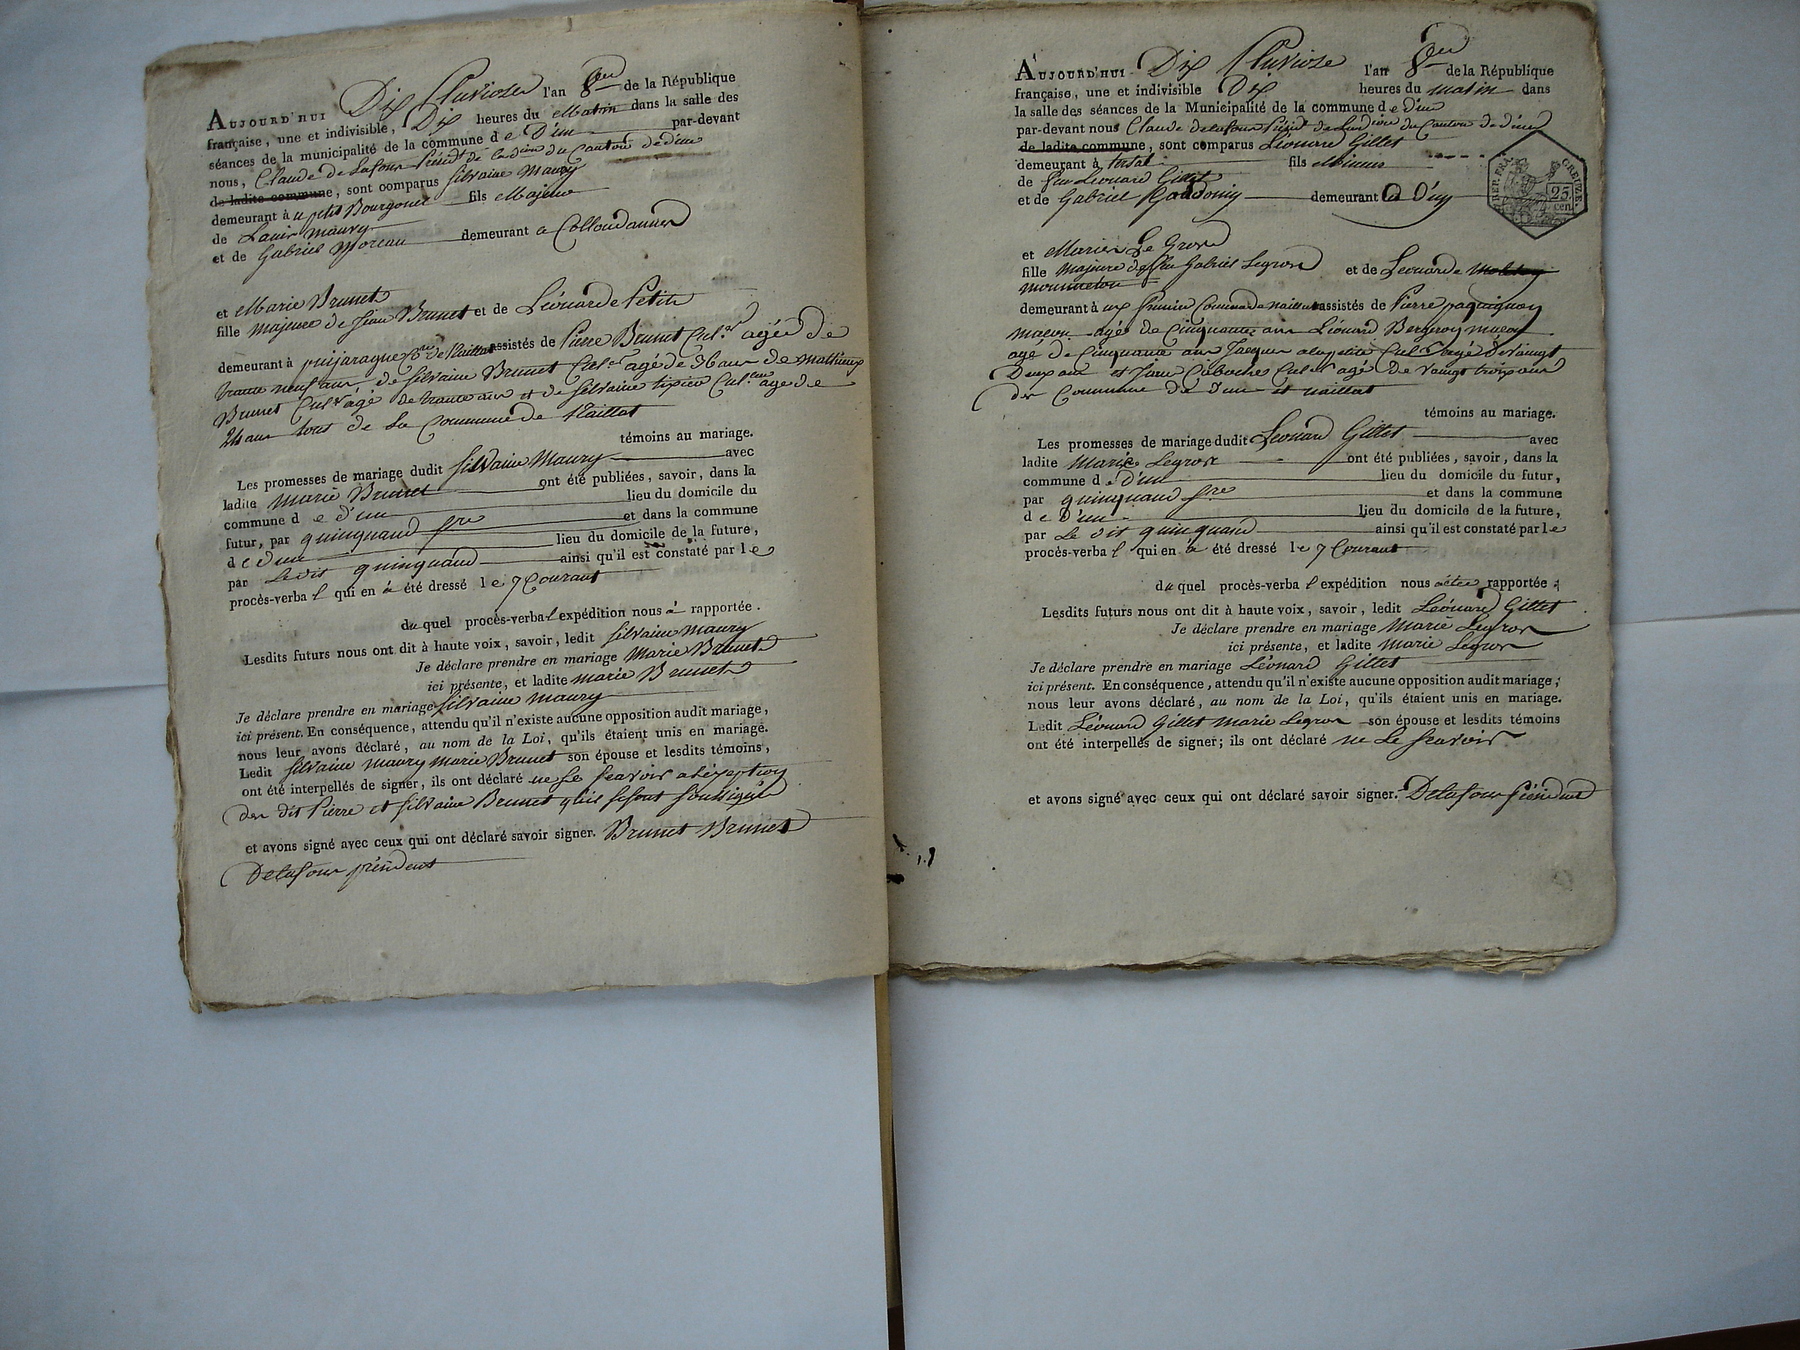 AUJOURD'HUI Dix Pluviose l'an 8eme de la République
française, une et indivisible, Dix heures du Matin dans la salle des
séances de la municipalité de la commune de D'un par-devant
nous, Claude Delafour Présidt de L'adion du Canton de d'un
de ladite commune, sont comparus Silvaine Maury
demeurant à petit Bourgouet fils Majeur
de Louis Maury
et de Gabriel Moreau demeurant a Collondannes
et Marie Brunet
fille majeure de Jean Brunet et de Léonarde Petite
demeurant à puijaragne Cne de Naillat assistés de Pierre Brunet Culr agée de
trante neuf ans, de Silvaine Brunet Culr agé de 36 ans de
Brunet Culr agé de trante ans et de Silvaine Culeur age de
24 ans tous de La Commune de Naillat
témoins au mariage.
Les promesses de mariage dudit Silvaine Maury avec
ladite Marie Brunet ont été publiées, savoir, dans la
commune de d'un lieu du domicile du
futur, par quinquaud et dans la commune
de d'un lieu du domicile de la future,
par Ledit quinquaud ainsi qu'il est constaté par le
procès-verbal qui en a été dressé le 7 Courant
duquel procès-verbal expédition nous a rapportée.
Lesdits futurs nous ont dit à haute voix, savoir, ledit Silvaine Maury
Je déclare prendre en mariage Marie Brunet
ici présente, et ladite Marie Brunet
Je déclare prendre en mariage Silvaine Maury
ici présent. En conséquence, attendu qu'il n'existe aucune opposition audit mariage,
nous leur avons déclaré, au nom de la Loi, qu'ils étaient unis en mariage.
Ledit Silvaine Maury Marie Brunet son épouse et lesdits témoins,
ont été interpellés de signer, ils ont déclaré ne Le Scavoir a Léxeption
des dit Pierre et Silvaine Brunet qui se sont Soussigné
et avons signé avec ceux qui ont déclaré savoir signer. Brunet Brunet
Delafour président
AUJOURD'HUI Dix Pluviose l'an 8eme de la République
française, une et indivisible Dix heures du matin dans
la salle des séances de la Municipalité de la commune de d'un
par-devant nous Claude delafour Présidt de L'adion du Canton de d'un
de ladite commune, sont comparus Léonard Gillet
demeurant à fils Mineur
de feu Léonard Gillet
et de Gabriel demeurant a D'un
et Marie Le Gros
fille majeure de feu Gabriel Legros et de Léonarde
demeurant à Commune de naillat assistés de Pierre paquignon
maçon agé de Cinquante ans Léonard Bergeron maçon
agé de Cinquante ans Jacques Culr agé de vaingt
Deux ans et Jean Caboche Culr agé de vaingt trois ans
des Commune de d'un et naillat
témoins au mariage.
Les promesses de mariage dudit Léonard Gillet avec
ladite Marie Legros ont été publiées, savoir, dans la
commune de d'un lieu du domicile du futur,
par quinquaud et dans la commune
de d'un lieu du domicile de la future,
par Le dit quinquaud ainsi qu'il est constaté par le
procès-verbal qui en a été dressé le 7 Courant
duquel procès-verbal expédition nous a été rapportée;
Lesdits futurs nous ont dit à haute voix, savoir, ledit Léonard Gillet
Je déclare prendre en mariage Marie Legros
ici présente, et ladite Marie Legros
Je déclare prendre en mariage Léonard Gillet
ici présent. En conséquence, attendu qu'il n'existe aucune opposition audit mariage;
nous leur avons déclaré, au nom de la Loi, qu'ils étaient unis en mariage.
Ledit Léonard Gillet Marie Legros son épouse et lesdits témoins
ont été interpellés de signer; ils ont déclaré ne Le Scavoir
et avons signé avec ceux qui ont déclaré savoir signer. Delafour président
REP. FRA.
CREUZE.
25
cen.